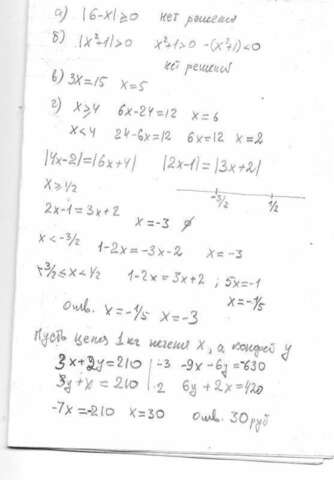 а) |6-x|≥0 нет решения
б) |x²+1|>0 x²+1>0 -(x²+1)<0
нет решений
в) 3x=15 x=5
г) x≥4 6x-24=12 x=6
x<4 24-6x=12 6x=12 x=2
|4x-2|=|6x+4| |2x-1|=|3x+2|
x≥1/2
-3/2 1/2
2x-1=3x+2 x=-3 ∅
x<-3/2 1-2x=-3x-2 x=-3
-3/2≤x<1/2 1-2x=3x+2; 5x=-1
x=-1/5
Отв. x=-1/5 x=-3
Пусть цена 1 кг печенья x, а конфет y
3x+2y=210 |-3 -9x-6y=-630
3y+x=210 |2 6y+2x=420
-7x=-210 x=30 Отв. 30 руб